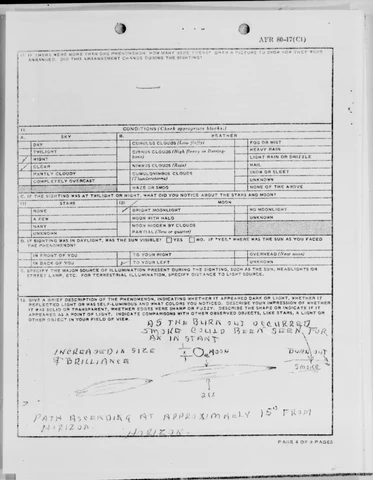 AFR 80-17(C1)
11. IF THERE WERE MORE THAN ONE PHENOMENON, HOW MANY WERE THERE? DRAW A PICTURE TO SHOW HOW THEY WERE
ARRANGED. DID THIS ARRANGEMENT CHANGE DURING THE SIGHTING?
CONDITIONS (Check appropriate blocks.)
A. SKY B. WEATHER
DAY CUMULUS CLOUDS (Low fluffy) FOG OR MIST
TWILIGHT CIRRUS CLOUDS (High fleecy or Herring-bone) HEAVY RAIN
NIGHT LIGHT RAIN OR DRIZZLE
CLEAR NIMBUS CLOUDS (Rain) HAIL
PARTLY CLOUDY CUMULONIMBUS CLOUDS (Thunderstorms) SNOW OR SLEET
COMPLETELY OVERCAST UNKNOWN
HAZE OR SMOG NONE OF THE ABOVE
C. IF THE SIGHTING WAS AT TWILIGHT OR NIGHT, WHAT DID YOU NOTICE ABOUT THE STARS AND MOON?
(1) STARS (2) MOON
NONE BRIGHT MOONLIGHT NO MOONLIGHT
A FEW MOON WITH HALO UNKNOWN
MANY MOON HIDDEN BY CLOUDS
UNKNOWN PARTIAL (New or quarter)
D. IF SIGHTING WAS IN DAYLIGHT, WAS THE SUN VISIBLE? YES NO. IF "YES," WHERE WAS THE SUN AS YOU FACED
THE PHENOMENON?
IN FRONT OF YOU TO YOUR RIGHT OVERHEAD (Near noon)
IN BACK OF YOU TO YOUR LEFT UNKNOWN
SPECIFY THE MAJOR SOURCE OF ILLUMINATION PRESENT DURING THE SIGHTING, SUCH AS THE SUN, HEADLIGHTS OR
STREET LAMP, ETC. FOR TERRESTRIAL ILLUMINATION, SPECIFY DISTANCE TO LIGHT SOURCE.
GIVE A BRIEF DESCRIPTION OF THE PHENOMENON, INDICATING WHETHER IT APPEARED DARK OR LIGHT, WHETHER IT
REFLECTED LIGHT OR WAS SELF-LUMINOUS AND WHAT COLORS YOU NOTICED. DESCRIBE YOUR IMPRESSION OF WHETHER
IT WAS SOLID OR TRANSPARENT, WHETHER EDGES WERE SHARP OR FUZZY. DESCRIBE THE SHAPE OR INDICATE IF IT
APPEARED AS A POINT OF LIGHT. INDICATE COMPARISONS WITH OTHER OBSERVED OBJECTS, LIKE STARS, A LIGHT OR
OTHER OBJECT IN YOUR FIELD OF VIEW.
AS THE BURN OUT OCCURRED
SMOKE COULD BEEN SEEN FOR
AN INSTANT
INCREASED IN SIZE MOON BURN OUT
& BRILLIANCE SMOKE
PATH ASCENDING AT APPROXIMATELY 15° FROM
HORIZON
HORIZON
PAGE 4 OF 5 PAGES